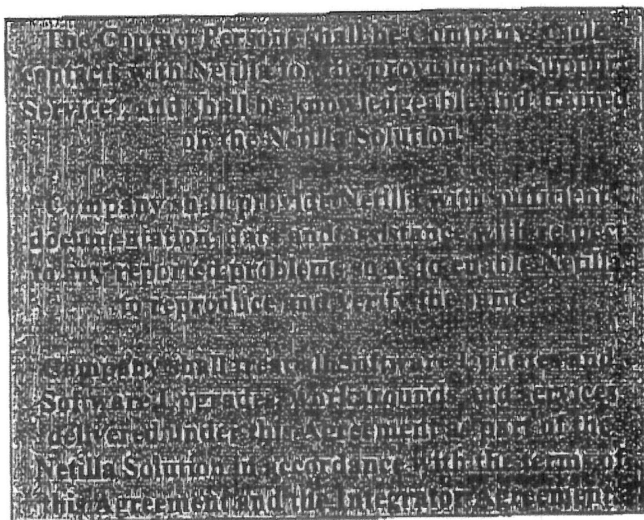 The Contact Persons shall be Company's sole
contacts with Netilla for the provision of Support
Services and shall be knowledgeable and trained
on the Netilla Solution.
Company shall provide Netilla with sufficient
documentation, data and assistance with respect
to any reported problems so as to enable Netilla
to reproduce and verify the same.
Company shall treat all Software Updates and
Software Upgrades, workarounds and services
delivered under this Agreement as part of the
Netilla Solution in accordance with the terms of
this Agreement and the Integrator Agreement.